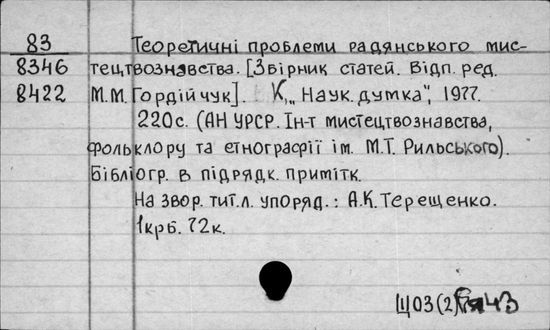 83 Теоретичні проблеми радянського мис-
8346 тецтвознавства. [Збірник статей. Відп. ред.
8422 М.М. Гордійчук]. К., „Наук. думка", 1977.
220с. (АН УРСР. Ін-т мистецтвознавства,
фольклору та етнографії ім. М.Т. Рильського).
Бібліогр. в підрядк. примітк.
На звор. тит. л. упоряд.: А.К. Терещенко.
1крб. 72к.
Щ03(2)